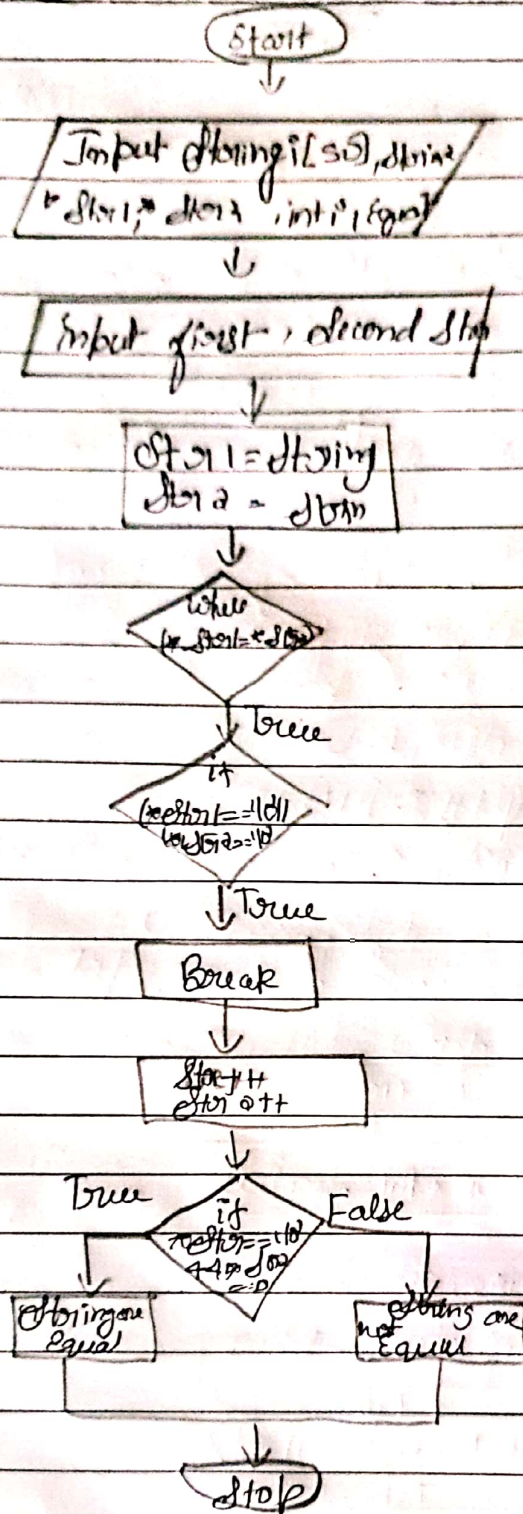 Start
Input String1[50], String2
*Str1, *Str2, int i, 
input first, Second
Str1 = String
Str2 =
While
(*Str1 = *Str2)
True
if
(*Str1 == '\0' ||
*Str2 == '\0'
True
Break
Str1++
Str2++
True
if
False
*Str1 == '\0'
String are
Equal
String are
not
Equal
Stop